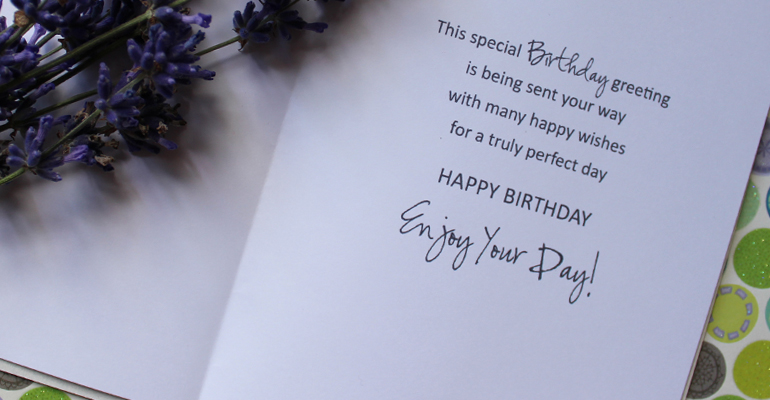 This special Birthday greeting
is being sent your way
with many happy wishes
for a truly perfect day
HAPPY BIRTHDAY
Enjoy Your Day!